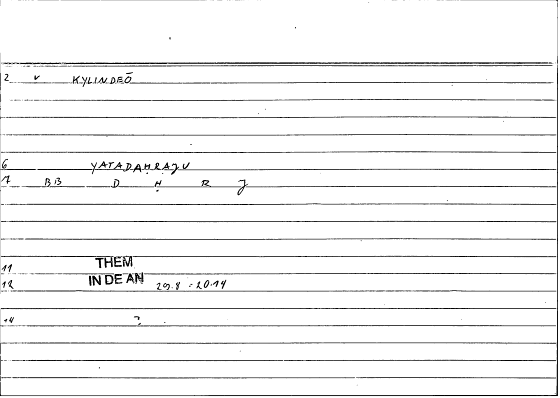 2 v KYLINDEŌ
6 YATADAḤRAJU
7 BB D Ḥ R J
11 THEM
12 IN DE AN 29.8 - 20.14
14 ?